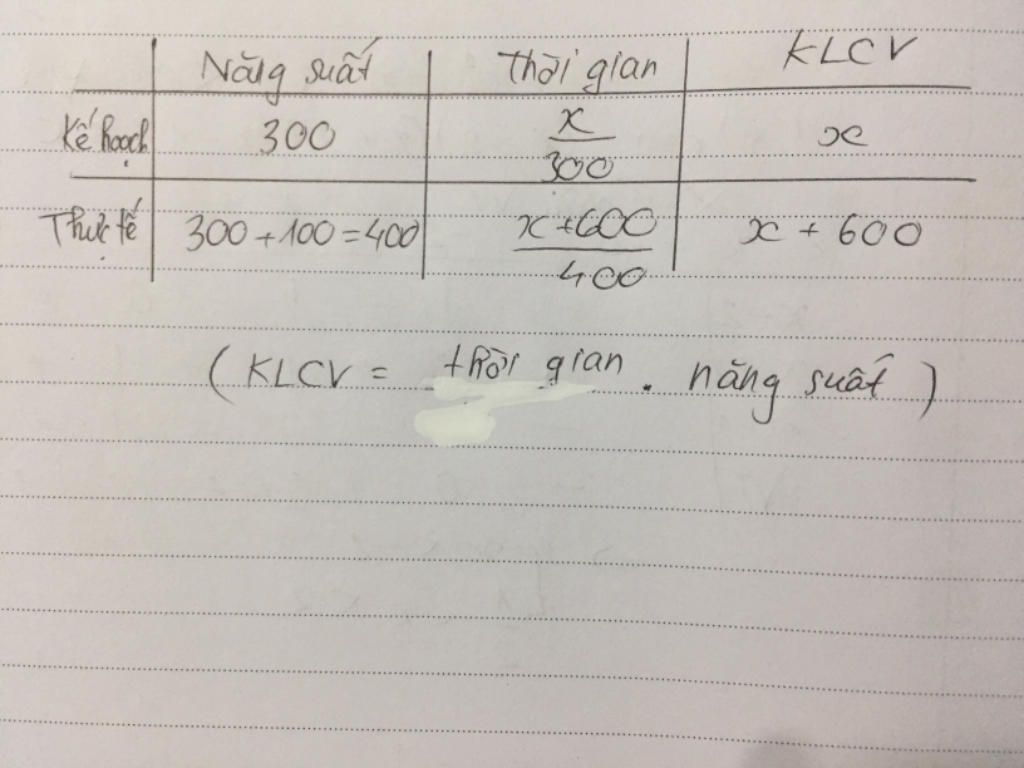 Năng suất Thời gian KLCV
Kế hoạch 300 x/300 x
Thực tế 300 + 100 = 400 x+600/400 x + 600
( KLCV = thời gian . năng suất )